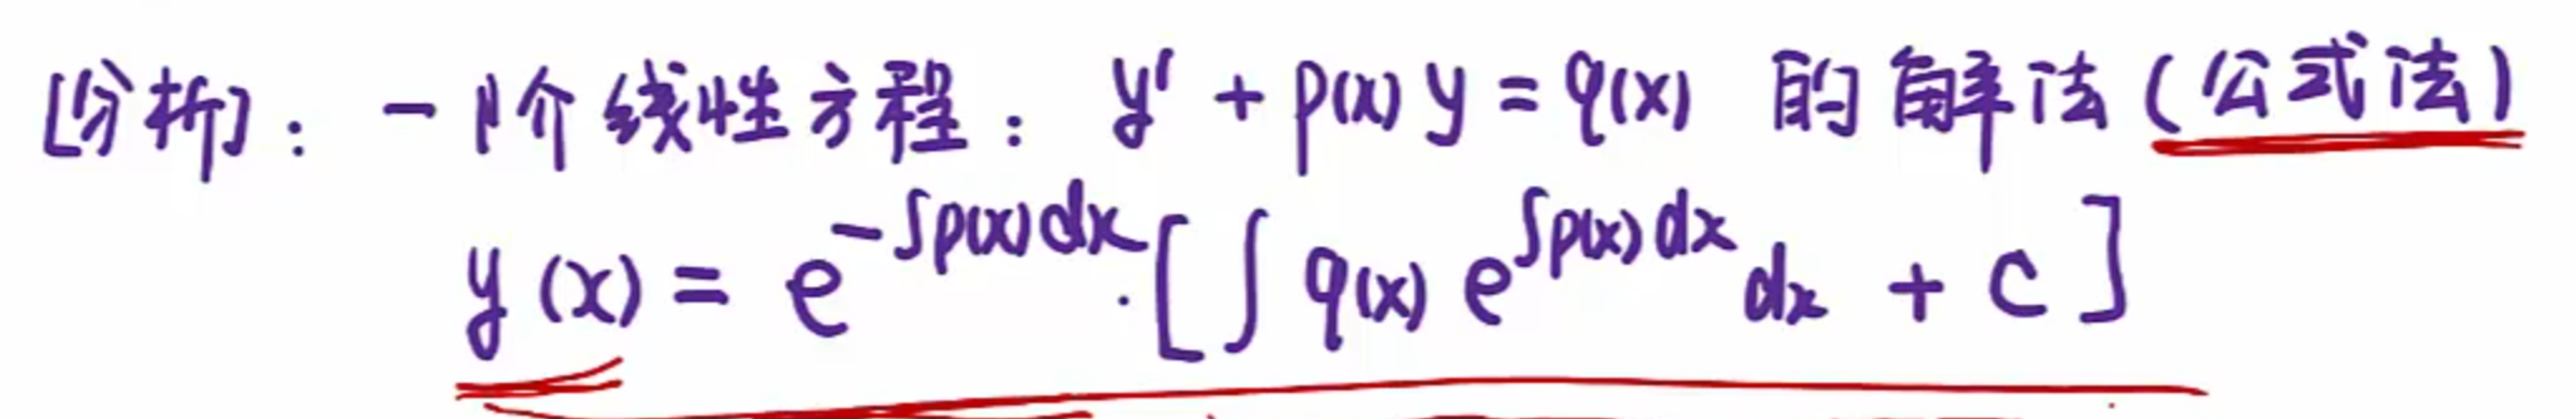 [分析]：一阶线性方程：y' + p(x) y = q(x) 的解法（公式法）
y(x) = e^{-∫p(x)dx} · [∫ q(x) e^{∫p(x)dx} dx + c]